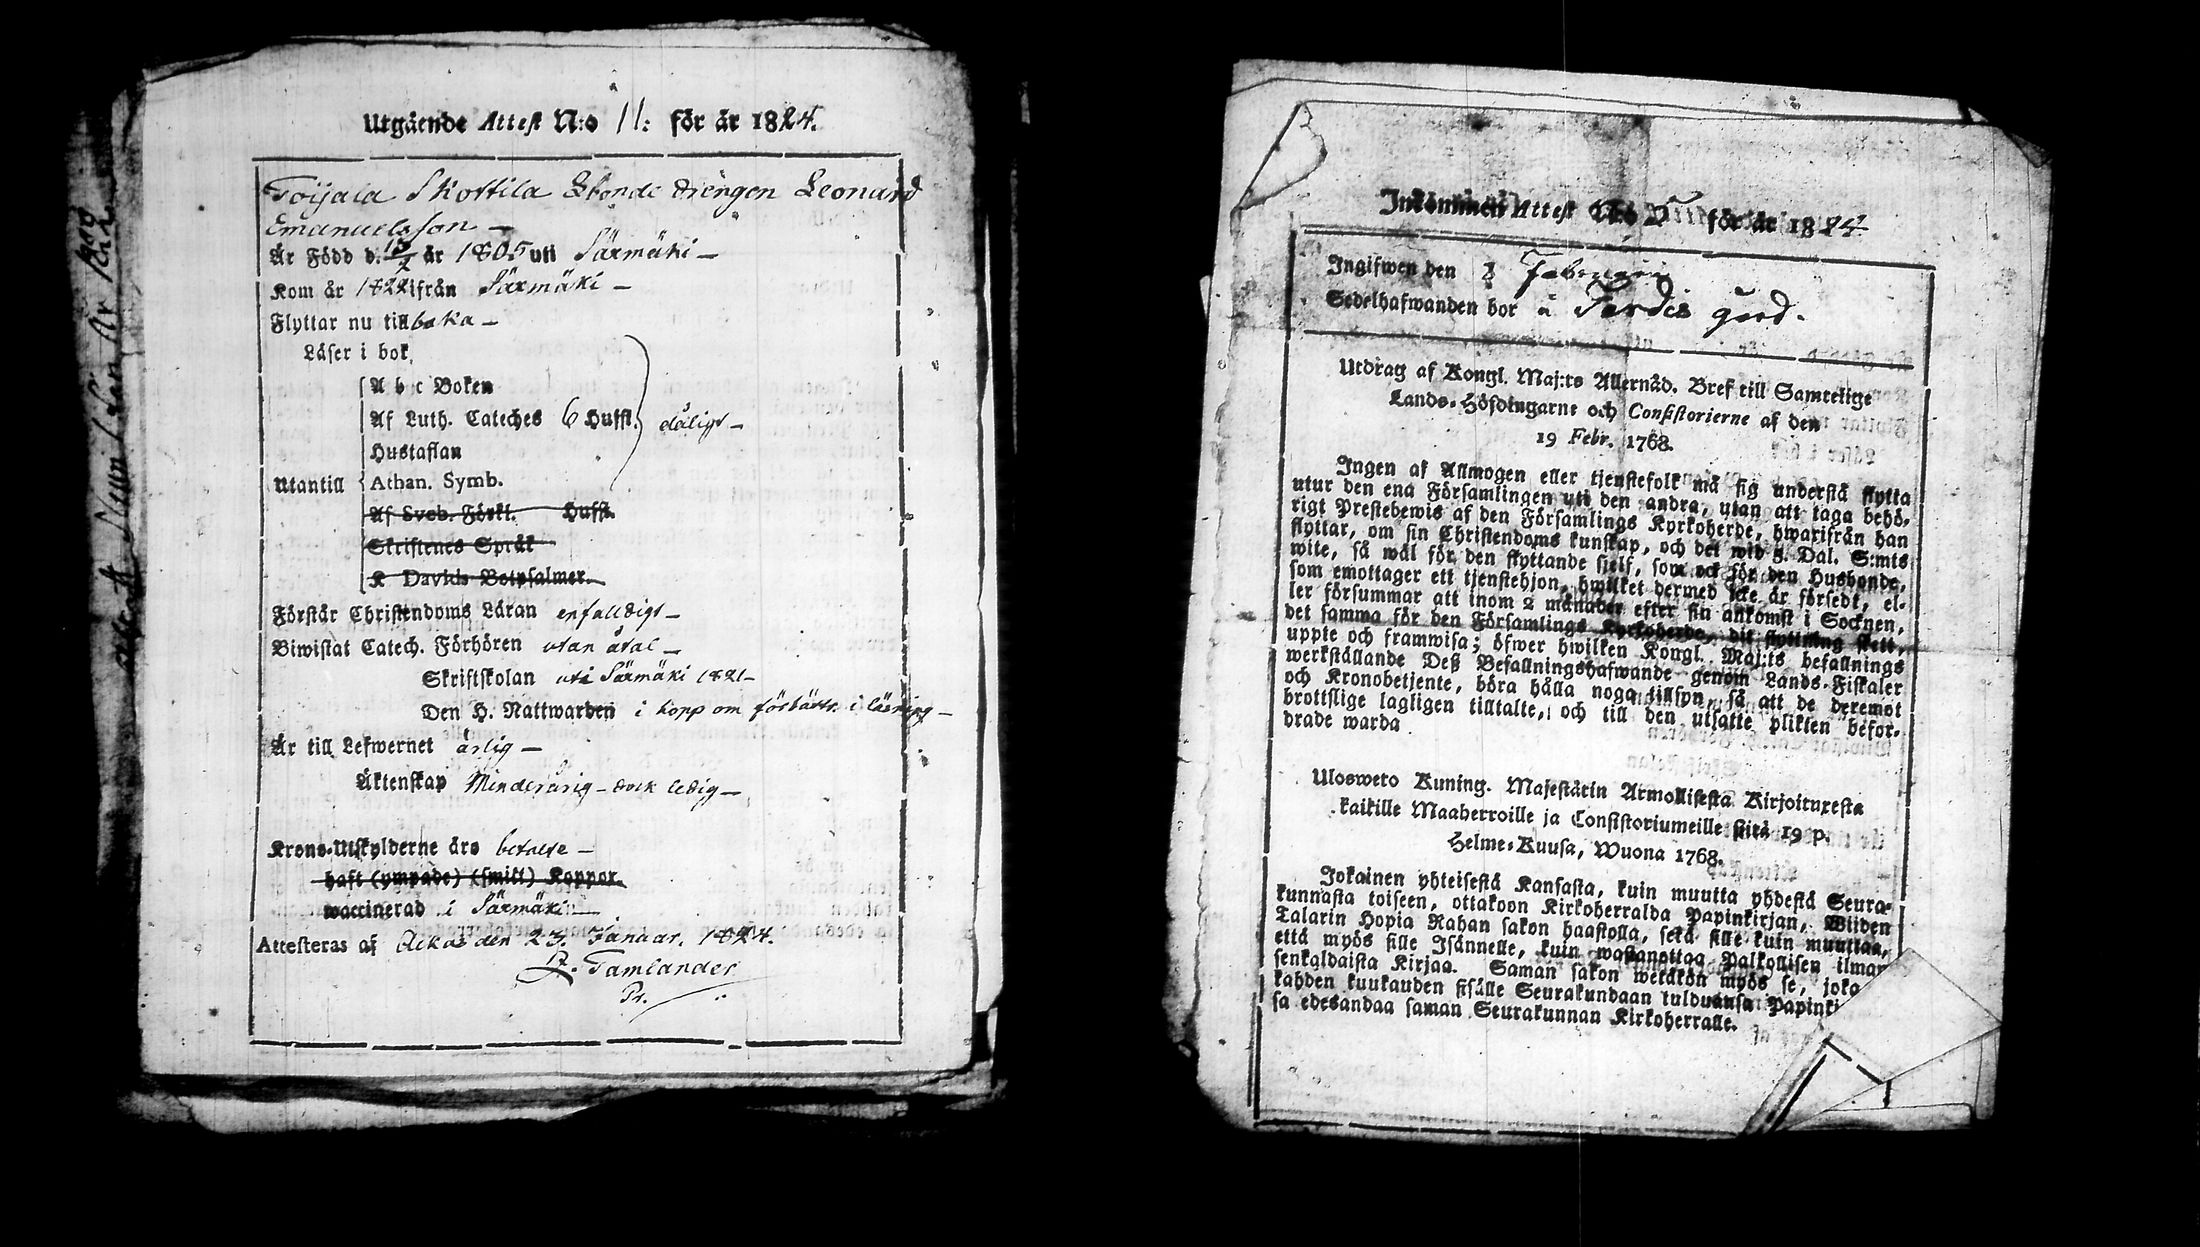 Utgående Attest N:o 11: för år 1824.
Toijala Skottila Bonde drengen Leonard
Emanuelsson —
Är Född d. år 1805 uti Särmäki —
Kom år 1822 ifrån Särmäki —
Flyttar nu tillbaka —
Läser i bok
A b c Boken
Af Luth. Cateches 6 Hufst. dåligt —
Hustaflan
Utantill Athan. Symb.
Af Sveb. Förkl. Hufst.
Skriftenes Språk
K Davids Botpsalmer.
Förstår Christendoms Läran enfalldigt —
Biwistat Catech. Förhören utan åtal —
Skriftskolan uti Särmäki 1821 —
Den H. Nattwarden i hopp om förbättr. i läsning —
Är till Lefwernet ärlig —
Äktenskap Minderårig — dock ledig —
Krono-Utskylderne äro betalte —
haft (ympade) (smitt) Koppor.
waccinerad i Särmäki —
Attesteras af Ackas den 23. Januar. 1824.
Tamlander
Pr.
Inkommen Attest N:o för år 1824
Ingifwen den Februarii
Sedelhafwanden bor å gård.
Utdrag af Kongl. Maj:ts Allernåd. Bref till Samtelige
Lands-Höfdingarne och Consistorierne af den
19 Febr. 1768.
Ingen af Allmogen eller tjenstefolk må sig understå flytta
utur den ena Församlingen uti den andra, utan att taga behö-
rigt Prestebewis af den Församlings Kyrkoherde, hwarifrån han
flyttar, om sin Christendoms kunskap, och det wid 5. Dal. S:mts
wite, så wäl för den flyttande sjelf, som ock för den Husbonde,
som emottager ett tjenstehjon, hwilket dermed icke är försedt, el-
ler försummar att inom 2 månader efter sin ankomst i Socknen,
det samma för den Församlings Kyrkoherde, dit flyttning skett,
uppte och framwisa; öfwer hwilken Kongl. Maj:ts befallnings
werkställande Deß Befallningshafwande genom Lands-Fiskaler
och Kronobetjente, böra hålla noga tillsyn, så att de deremot
brottslige lagligen tilltalte, och till den utsatte plikten befor-
drade warda
Ulosweto Kuning. Majestätin Armollisesta Kirjoituxesta
kaikille Maaherroille ja Consistoriumeille siitä 19 p.
Helme-Kuusa, Wuona 1768.
Jokainen yhteisestä Kansasta, kuin muutta yhdestä Seura-
kunnasta toiseen, ottakoon Kirkoherralda Papinkirjan, Wiiden
Talarin Hopia Rahan sakon haastolla, sekä sille kuin muuttaa,
että myös sille Isännelle, kuin wastanottaa Palkollisen ilman
senkaldaista Kirjaa. Saman sakon wetäkön myös se, joka
kahden kuukauden sisälle Seurakundaan tulduansa Papinki
sa edesandaa saman Seurakunnan Kirkoherralle.